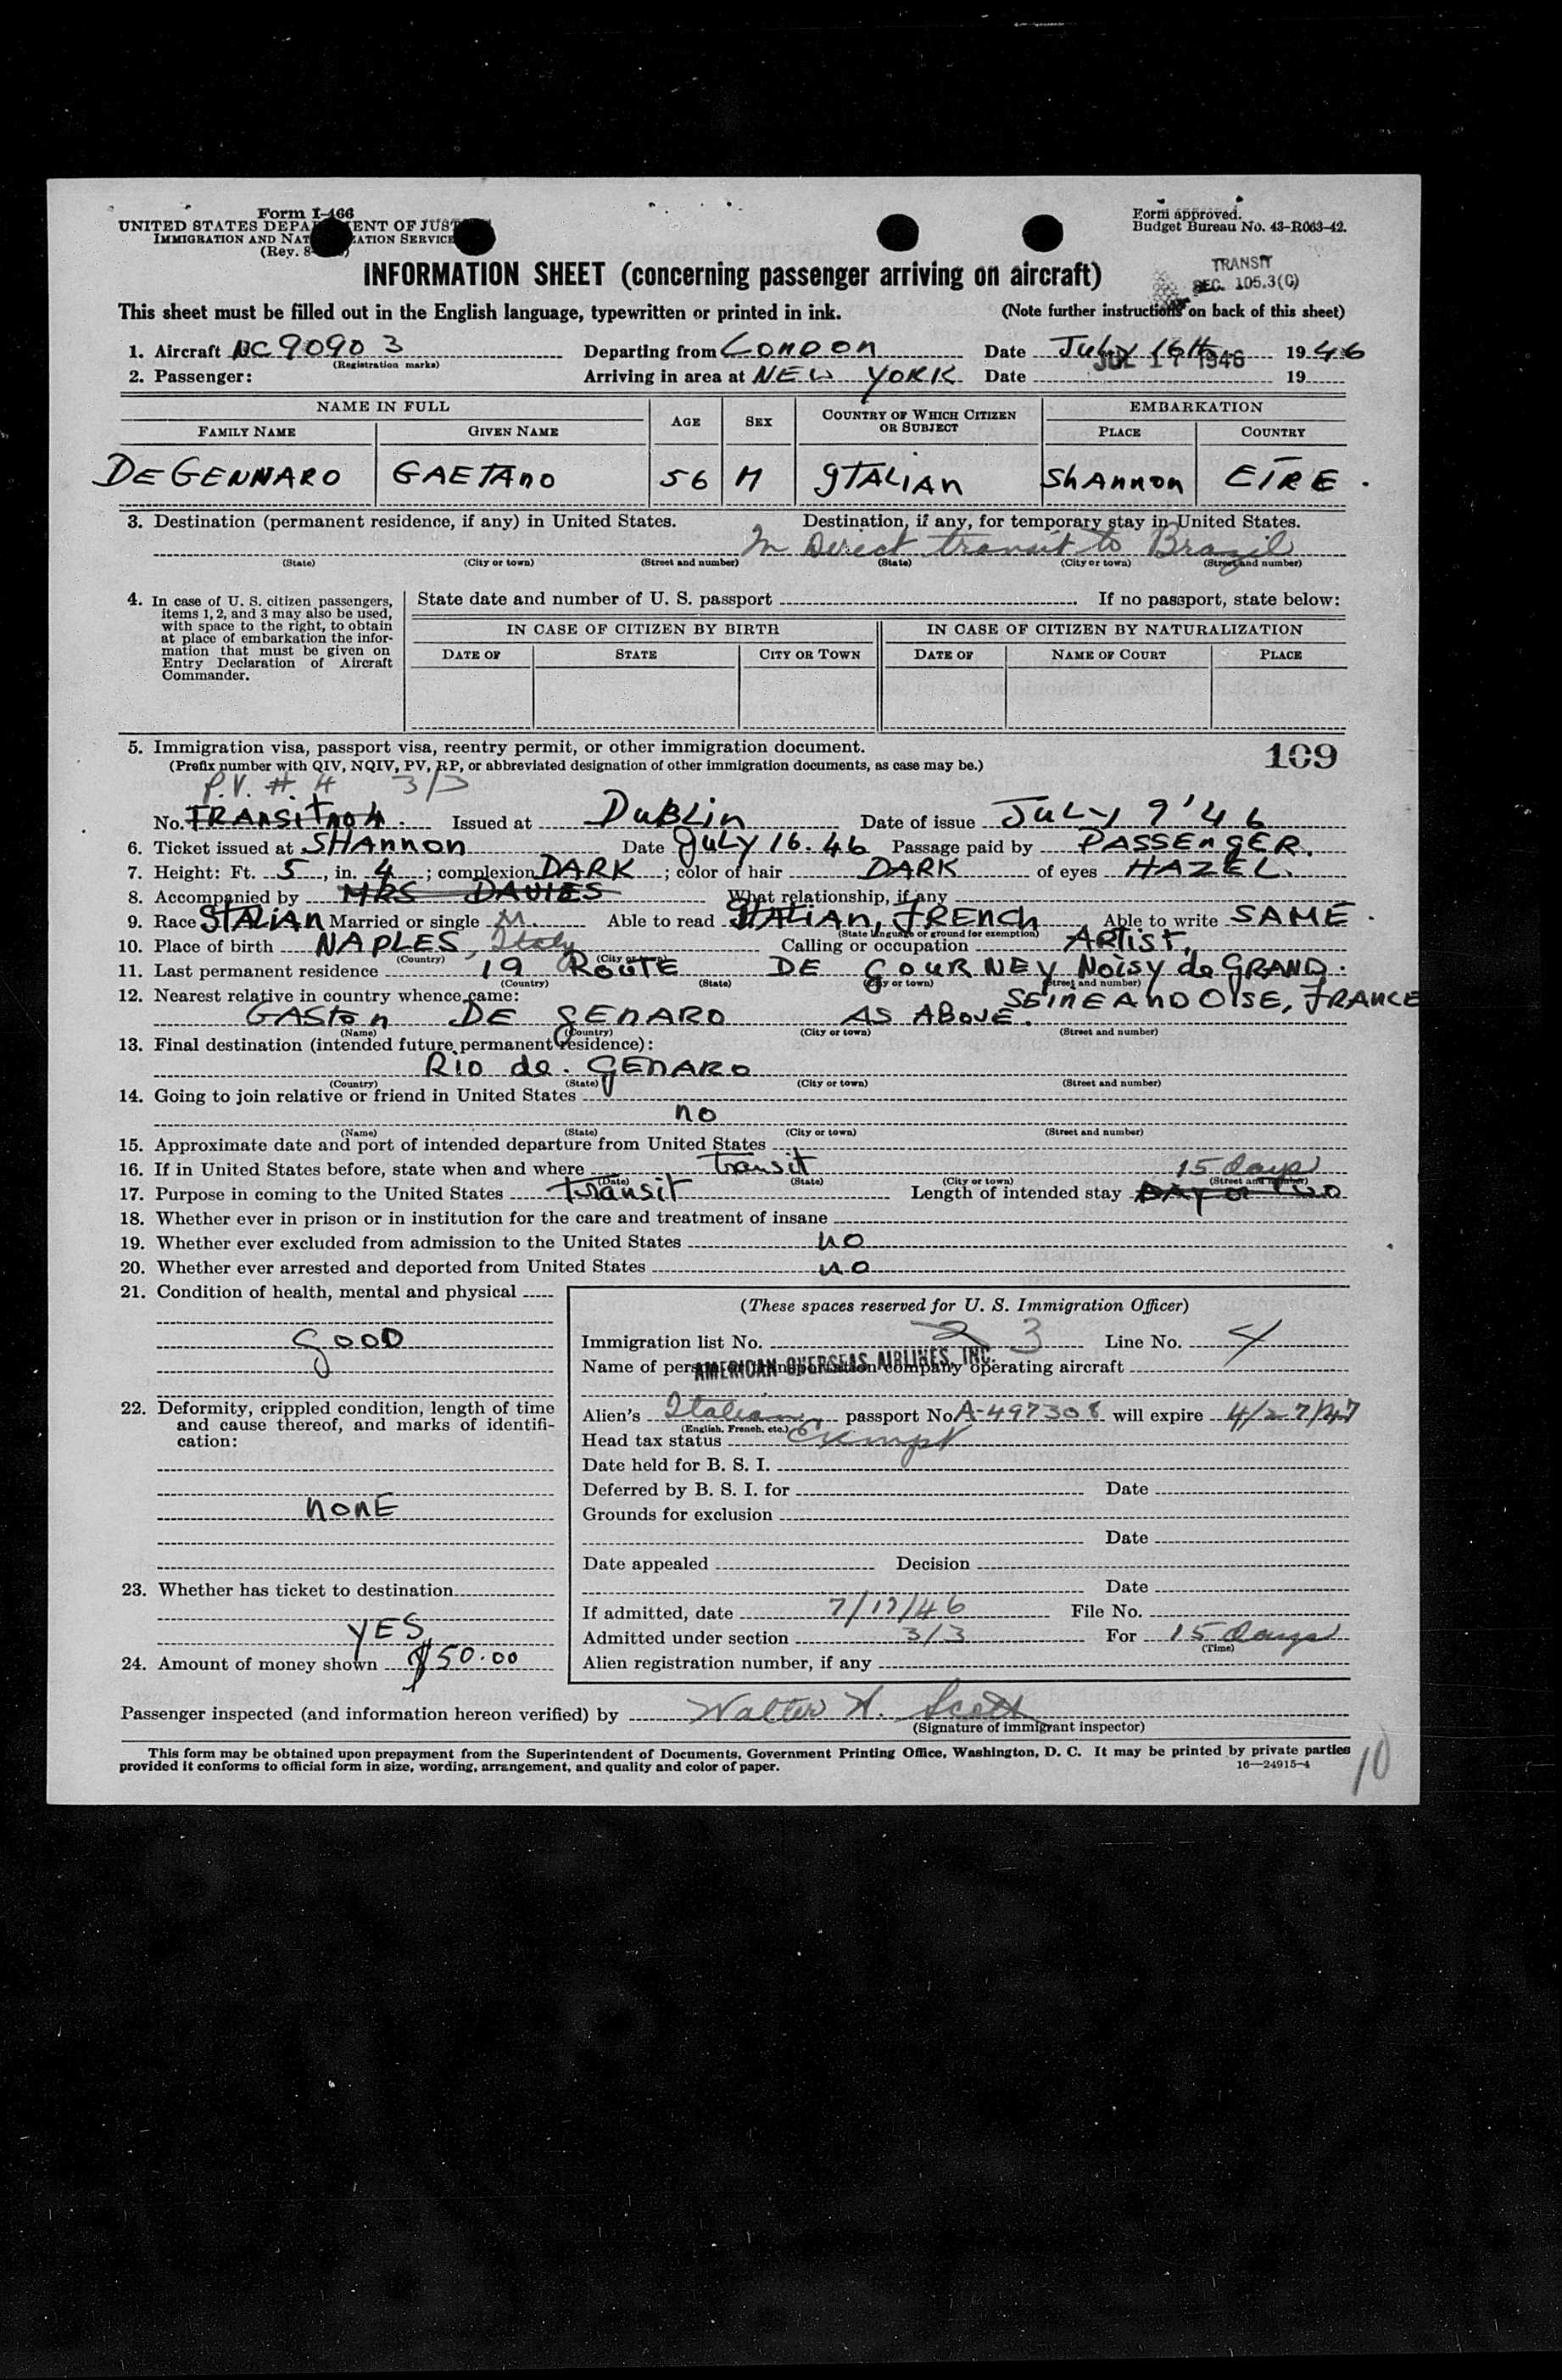 Form I-466
UNITED STATES DEPA ENT OF JUST
IMMIGRATION AND NAT ZATION SERVICE
(Rev. 8- )
Form approved.
Budget Bureau No. 43-R063-42.
INFORMATION SHEET (concerning passenger arriving on aircraft)
TRANSIT
SEC. 105.3(C)
This sheet must be filled out in the English language, typewritten or printed in ink. (Note further instructions on back of this sheet)
1. Aircraft NC 90903 Departing from LONDON Date July 16th 1946
(Registration marks)
JUL 17 1946
2. Passenger: Arriving in area at NEW YORK Date 19
NAME IN FULL AGE SEX COUNTRY OF WHICH CITIZEN OR SUBJECT EMBARKATION
FAMILY NAME GIVEN NAME PLACE COUNTRY
DE GENNARO GAETANO 56 M ITALIAN SHANNON EIRE.
3. Destination (permanent residence, if any) in United States. Destination, if any, for temporary stay in United States.
In Direct transit to Brazil
(State) (City or town) (Street and number) (State) (City or town) (Street and number)
4. In case of U. S. citizen passengers, items 1, 2, and 3 may also be used, with space to the right, to obtain at place of embarkation the information that must be given on Entry Declaration of Aircraft Commander.
State date and number of U. S. passport If no passport, state below:
IN CASE OF CITIZEN BY BIRTH IN CASE OF CITIZEN BY NATURALIZATION
DATE OF STATE CITY OR TOWN DATE OF NAME OF COURT PLACE
5. Immigration visa, passport visa, reentry permit, or other immigration document.
109
(Prefix number with QIV, NQIV, PV, RP, or abbreviated designation of other immigration documents, as case may be.)
P.V. #. 4 3/3
No. TRANSIT no 4. Issued at DUBLIN Date of issue JULY 9 '46
6. Ticket issued at SHANNON Date JULY 16. 46 Passage paid by PASSENGER.
7. Height: Ft. 5, in. 4; complexion DARK; color of hair DARK of eyes HAZEL.
8. Accompanied by MRS DAVIES What relationship, if any
9. Race ITALIAN Married or single M. Able to read ITALIAN, FRENCH Able to write SAME.
(State language or ground for exemption)
10. Place of birth NAPLES, Italy Calling or occupation ARTIST,
(Country) (City or town)
11. Last permanent residence 19 ROUTE DE GOURNEY NOISY de GRAND.
(Country) (State) (City or town) (Street and number)
12. Nearest relative in country whence came: SEINE AND OISE, FRANCE
GASTON DE GENARO AS ABOVE.
(Name) (Country) (City or town) (Street and number)
13. Final destination (intended future permanent residence):
RIO de. GENARO
(Country) (State) (City or town) (Street and number)
14. Going to join relative or friend in United States
no
(Name) (State) (City or town) (Street and number)
15. Approximate date and port of intended departure from United States
16. If in United States before, state when and where Transit 15 days
(Date) (State) (City or town) (Street and number)
17. Purpose in coming to the United States Transit Length of intended stay DAY or TWO
18. Whether ever in prison or in institution for the care and treatment of insane
19. Whether ever excluded from admission to the United States NO
20. Whether ever arrested and deported from United States NO
21. Condition of health, mental and physical
GOOD
22. Deformity, crippled condition, length of time and cause thereof, and marks of identification:
NONE
23. Whether has ticket to destination
YES
24. Amount of money shown $50.00
(These spaces reserved for U. S. Immigration Officer)
Immigration list No. 2 3 Line No. 4
Name of person or transportation company operating aircraft
AMERICAN OVERSEAS AIRLINES, INC.
Alien's Italian passport No. A-497308 will expire 4/27/47
(English, French, etc.)
Head tax status Exempt
Date held for B. S. I.
Deferred by B. S. I. for Date
Grounds for exclusion
Date
Date appealed Decision
Date
If admitted, date 7/17/46 File No.
Admitted under section 3/3 For 15 days
(Time)
Alien registration number, if any
Passenger inspected (and information hereon verified) by Walter H. Scott
(Signature of immigrant inspector)
This form may be obtained upon prepayment from the Superintendent of Documents, Government Printing Office, Washington, D. C. It may be printed by private parties
provided it conforms to official form in size, wording, arrangement, and quality and color of paper. 16—24915-4
10